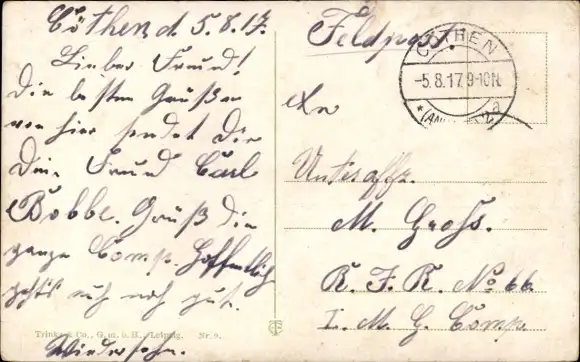 Cöthen d. 5.8.17.
Lieber Freund!
Die besten Grüße
von hier sendet Dir
Dein Freund Carl
Bobbe. Grüß die
ganze Comp. Hoffentlich
geht's euch noch gut.
Wiedersehn.
Trinks & Co., G. m. b. H., Leipzig. Nr. 9.
Feldpost.
CÖTHEN
-5.8.17.9-10N.
a
* (ANHALT)
An
Unteroffz.
M. Groß.
R. J. R. No 66
I. M. G. Comp.